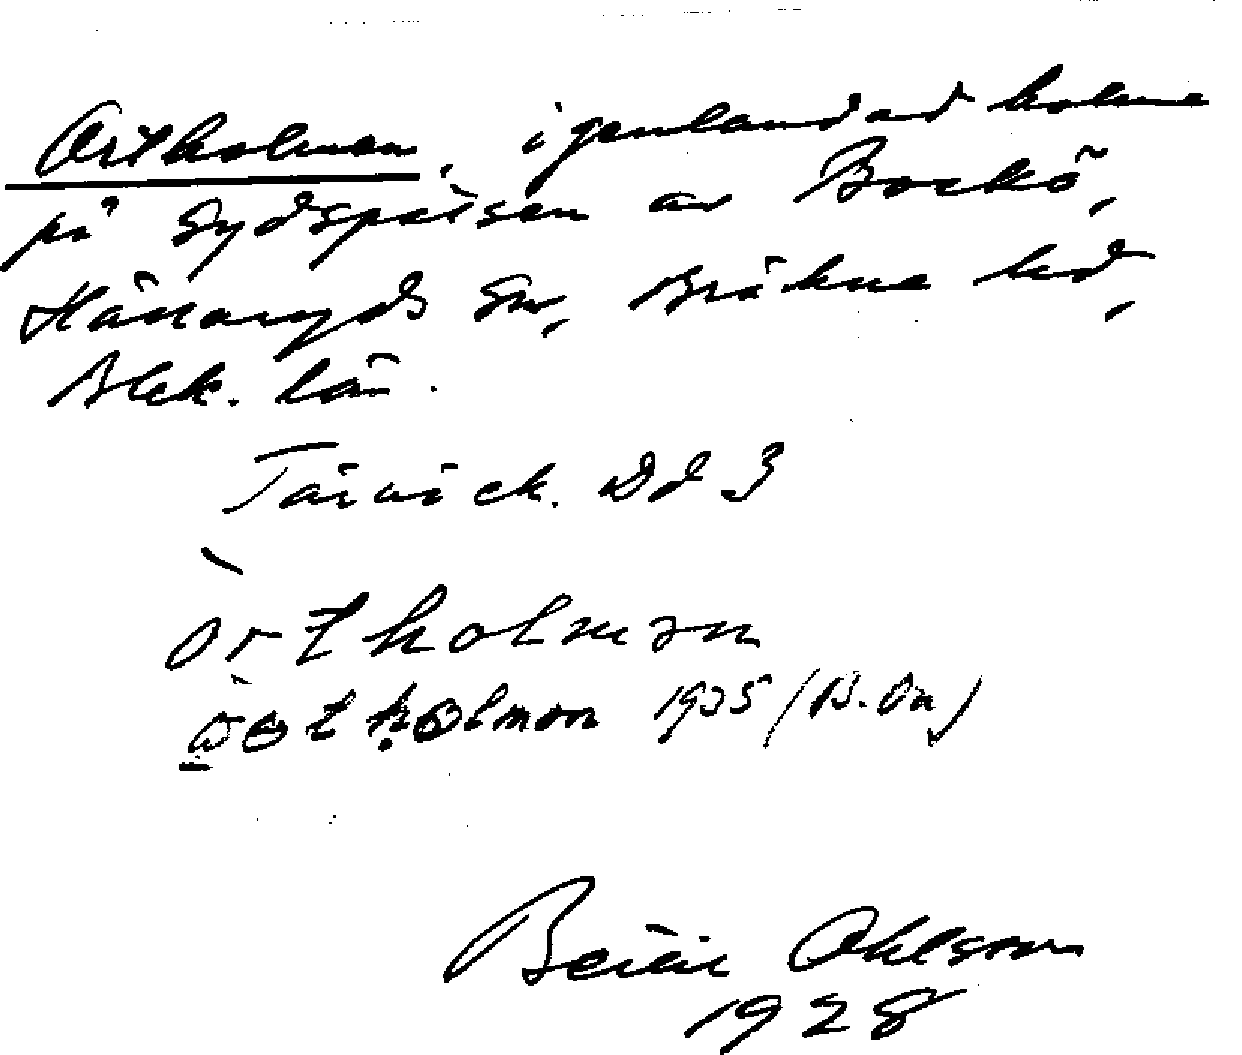 Ortholmen, igenlandad holme
på Sydspetsen av Bockö,
Hällaryds Sn, Bräkne hd,
Blek. län.
Tärnö ek. Dd 3
òrtholmən
1935 (B. On)
Beréie Ohlsson
1928